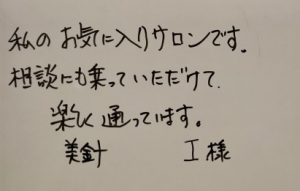 私のお気に入りサロンです.
相談にも乗っていただけて.
楽しく通っています。
美針 I様